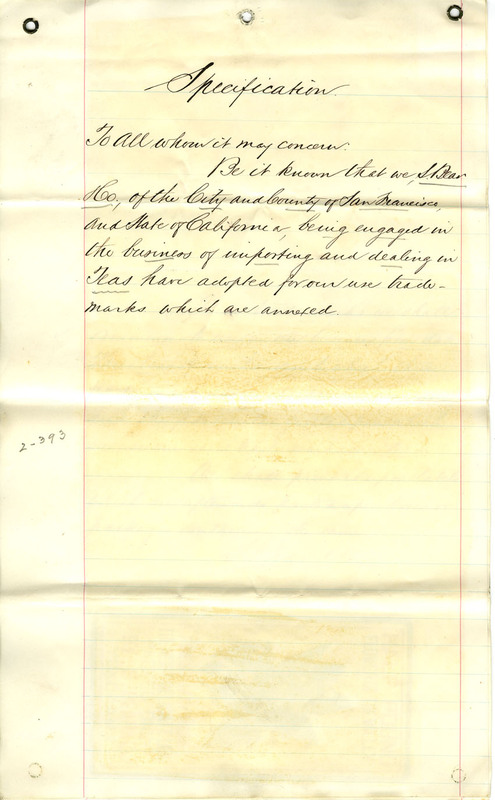 Specification.
To All whom it may concern:
Be it known that we,
& Co., of the City and County of San Francisco,
and State of California, being engaged in
the business of importing and dealing in
Teas have adopted for our use trade-
marks which are annexed.
2-393